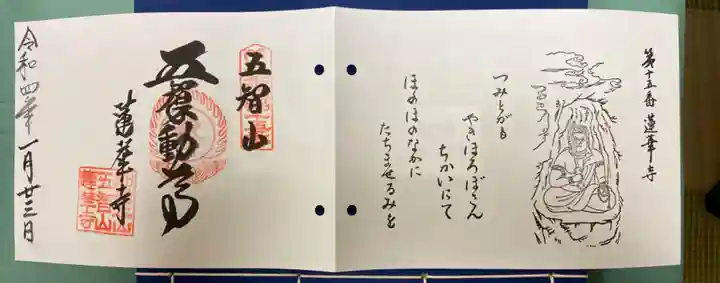 第十五番 蓮華寺
つみとがも
やきほろぼさん
ちかいにて
ほのほのなかに
たちませるみを
五智山
不動尊
蓮華寺
令和四年一月廿三日
五智山
蓮華寺